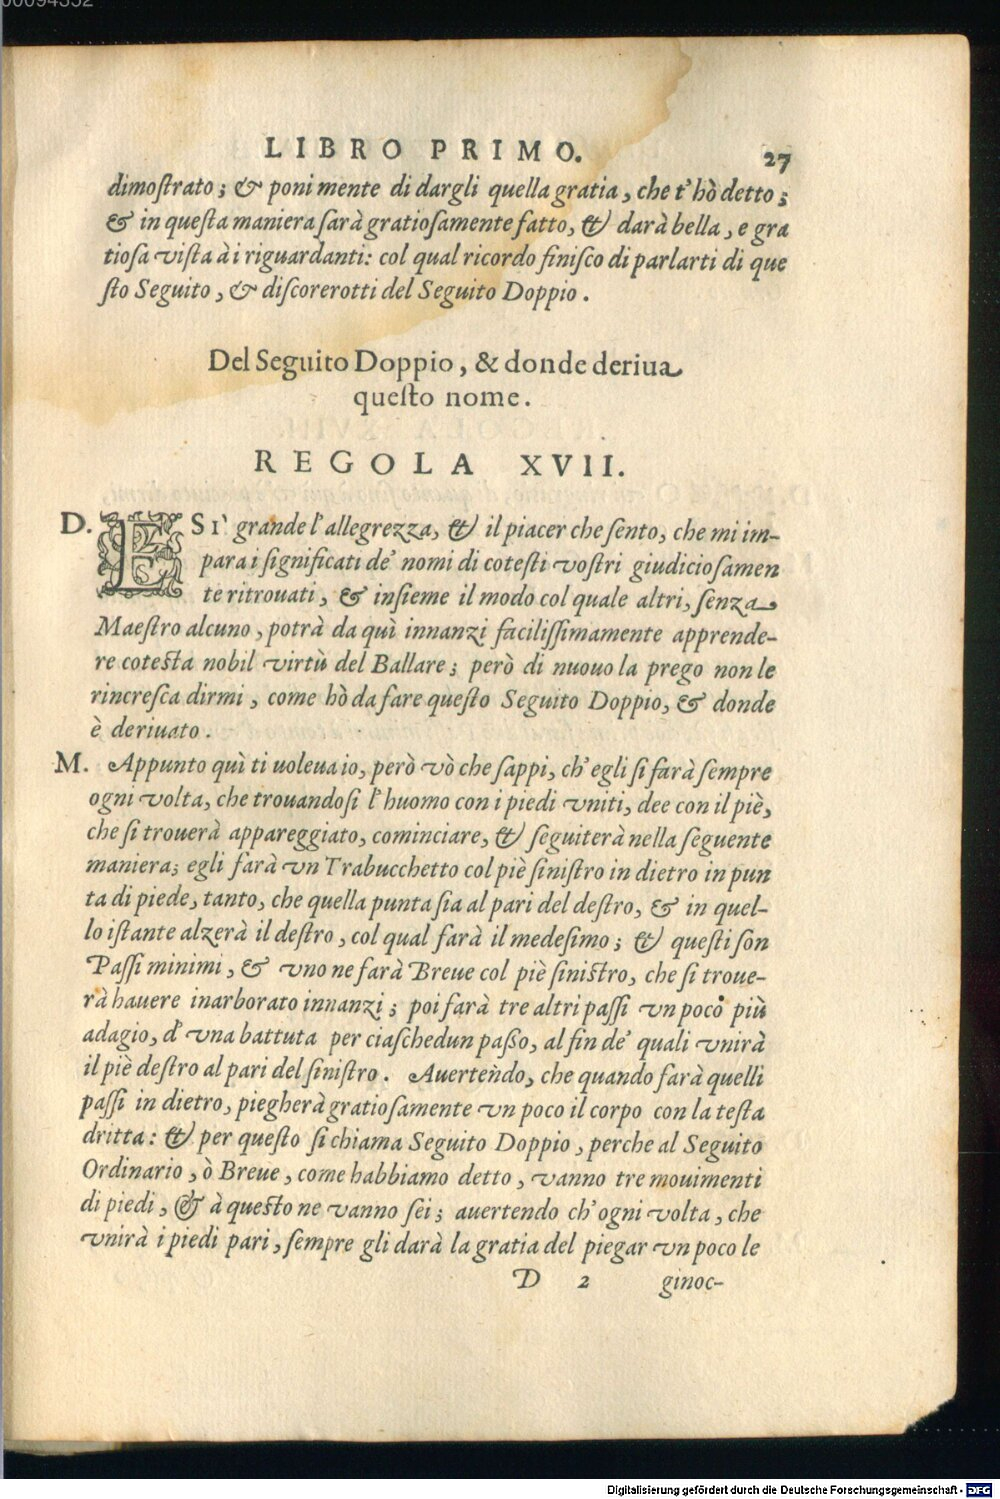 00094352
LIBRO PRIMO.
27
dimoſtrato; & poni mente di dargli quella gratia, che t'hò detto;
& in queſta maniera ſarà gratioſamente fatto, & darà bella, e gra
tioſa viſta à i riguardanti: col qual ricordo finiſco di parlarti di que
ſto Seguito, & diſcorerotti del Seguito Doppio.
Del Seguito Doppio, & donde deriua
queſto nome.
REGOLA XVII.
D. E SI' grande l'allegrezza, & il piacer che ſento, che mi im-
para i ſignificati de' nomi di coteſti voſtri giudicioſamen
te ritrouati, & inſieme il modo col quale altri, ſenza
Maeſtro alcuno, potrà da quì innanzi faciliſſimamente apprende-
re coteſta nobil virtù del Ballare; però di nuouo la prego non le
rincreſca dirmi, come hò da fare queſto Seguito Doppio, & donde
è deriuato.
M. Appunto quì ti uoleua io, però vò che ſappi, ch'egli ſi farà ſempre
ogni volta, che trouandoſi l'huomo con i piedi vniti, dee con il piè,
che ſi trouerà appareggiato, cominciare, & ſeguiterà nella ſeguente
maniera; egli farà vn Trabucchetto col piè ſiniſtro in dietro in pun
ta di piede, tanto, che quella punta ſia al pari del deſtro, & in quel-
lo iſtante alzerà il deſtro, col qual farà il medeſimo; & queſti ſon
Paſſi minimi, & vno ne farà Breue col piè ſiniſtro, che ſi troue-
rà hauere inarborato innanzi; poi farà tre altri paſſi vn poco più
adagio, d'vna battuta per ciaſchedun paſſo, al fin de' quali vnirà
il piè deſtro al pari del ſiniſtro. Auertendo, che quando farà quelli
paſſi in dietro, piegherà gratioſamente vn poco il corpo con la teſta
dritta: & per queſto ſi chiama Seguito Doppio, perche al Seguito
Ordinario, ò Breue, come habbiamo detto, vanno tre mouimenti
di piedi, & à queſto ne vanno ſei; auertendo ch'ogni volta, che
vnirà i piedi pari, ſempre gli darà la gratia del piegar vn poco le
D 2 ginoc-
Digitalisierung gefördert durch die Deutsche Forschungsgemeinschaft - DFG